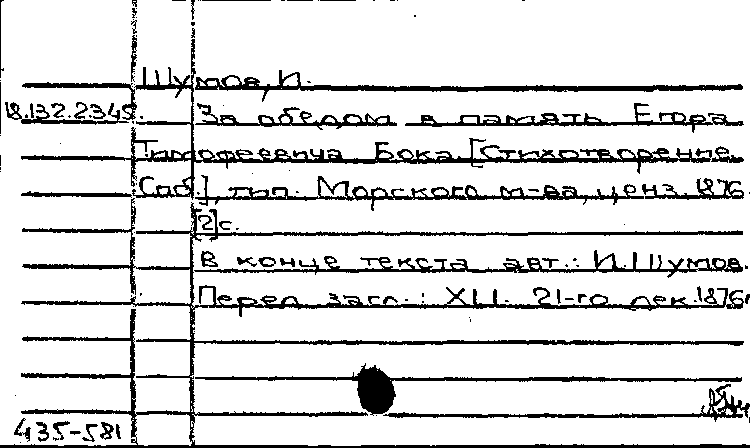 Шумов, И.
18.132.2.345. За обедом в память Егора
Тимофеевича Бока. [Стихотворение.
Спб.], тип. Морского м-ва, ценз. 1876.
[2]с.
В конце текста авт.: И. Шумов.
Перед загл.: XLI. 21-го дек. 1876г.
435-581